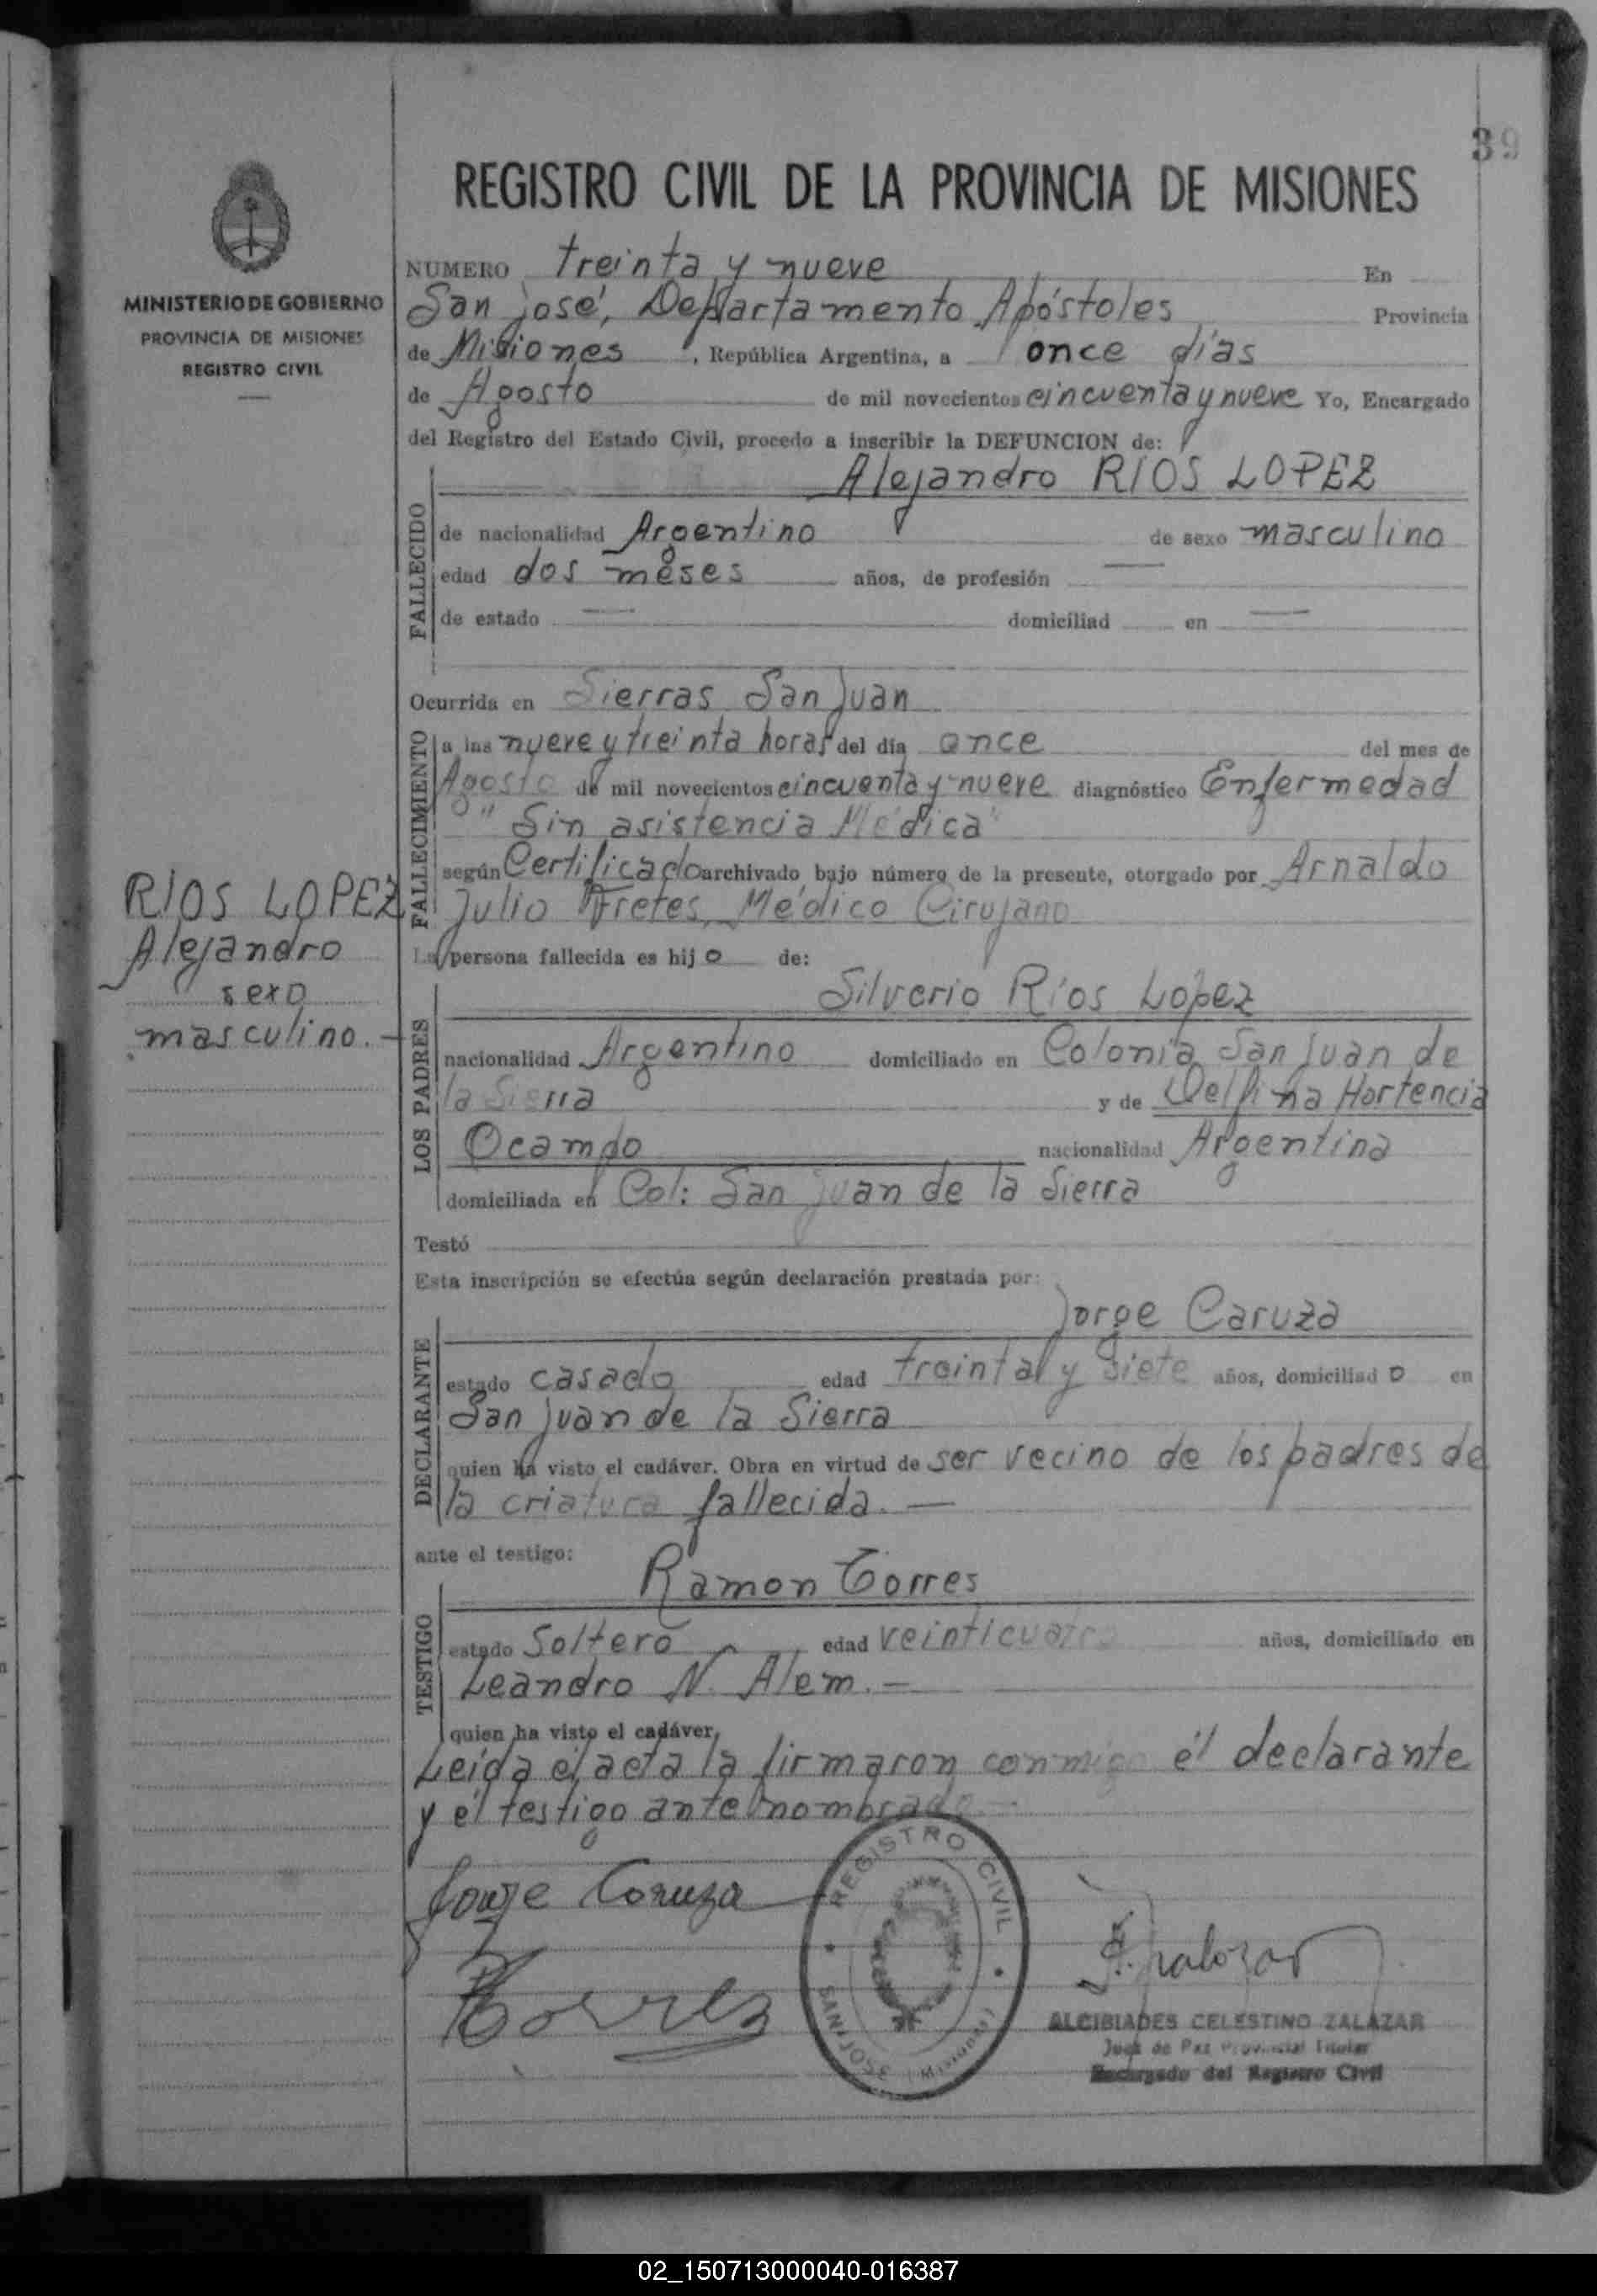 39
REGISTRO CIVIL DE LA PROVINCIA DE MISIONES
MINISTERIO DE GOBIERNO
PROVINCIA DE MISIONES
REGISTRO CIVIL
NUMERO treinta y nueve En
San José, Departamento Apóstoles Provincia
de Misiones, República Argentina, a once días
de Agosto de mil novecientos cincuenta y nueve Yo, Encargado
del Registro del Estado Civil, procedo a inscribir la DEFUNCION de:
Alejandro RIOS LOPEZ
FALLECIDO
de nacionalidad Argentino de sexo masculino
edad dos meses años, de profesión —
de estado — domiciliad en —
Ocurrida en Sierras San Juan
FALLECIMIENTO
a las nueve y treinta horas del día once del mes de
Agosto de mil novecientos cincuenta y nueve diagnóstico Enfermedad
"Sin asistencia Médica"
según Certificado archivado bajo número de la presente, otorgado por Arnaldo
Julio Fretes, Médico Cirujano
RIOS LOPEZ
Alejandro
sexo
masculino.-
La persona fallecida es hijo de:
Silverio Ríos Lopez
LOS PADRES
nacionalidad Argentino domiciliado en Colonia San Juan de
la Sierra y de Delfina Hortencia
Ocampo nacionalidad Argentina
domiciliada en Col: San Juan de la Sierra
Testó
Esta inscripción se efectúa según declaración prestada por:
Jorge Caruza
DECLARANTE
estado casado edad treinta y siete años, domiciliado en
San Juan de la Sierra
quien ha visto el cadáver. Obra en virtud de ser vecino de los padres de
la criatura fallecida. —
ante el testigo:
Ramon Torres
TESTIGO
estado Soltero edad veinticuatro años, domiciliado en
Leandro N. Alem. —
quien ha visto el cadáver,
Leída el acta la firmaron conmigo el declarante
y el testigo antenombrado —
Jorge Caruza
Torres
REGISTRO CIVIL
SAN JOSE (Misiones)
ALCIBIADES CELESTINO ZALAZAR
Juez de Paz Provincial Titular
Encargado del Registro Civil
02_150713000040-016387